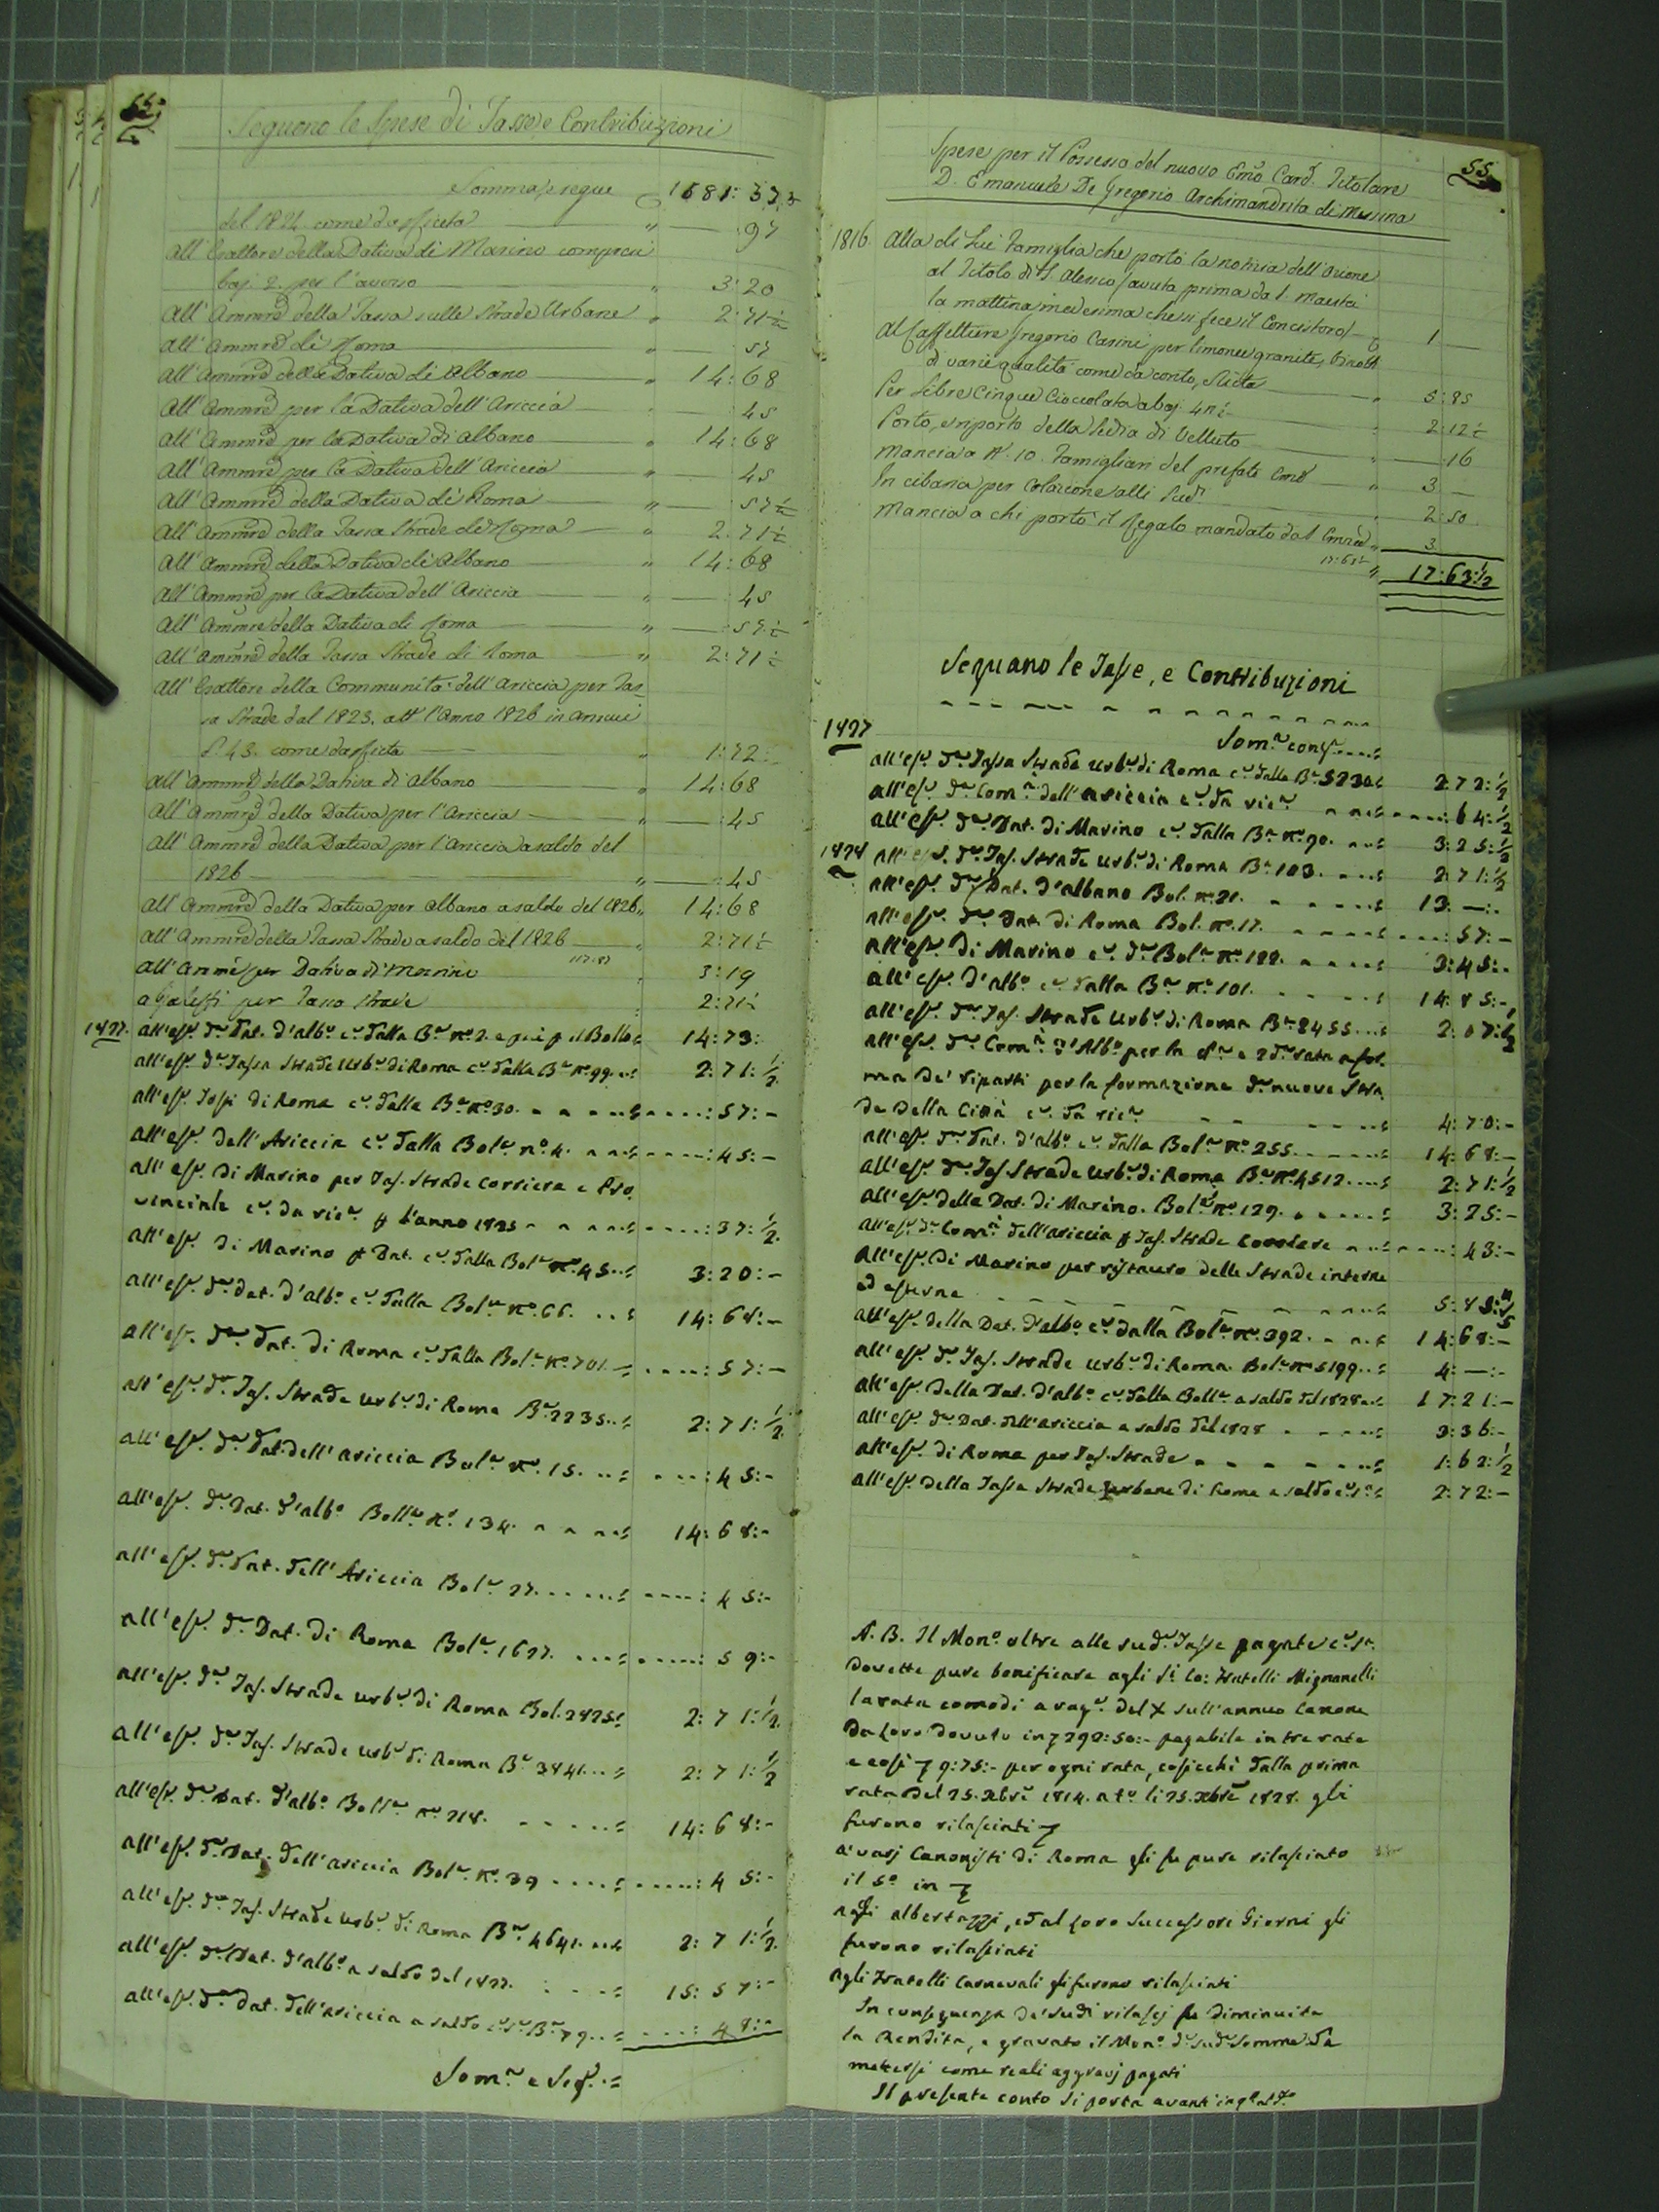 Seguono le Spese di Tasse, e Contribuzioni
Somma, e segue 1681: 53
del 1824 come da ffieta " — : 97
all' Esattore della Dativa di Marino compresi
baj. 2. per l'avviso " 3: 20
all' Ammre della Tassa sulle Strade Urbane " 2: 71½
all' Ammre di Roma " — 57
all' Ammre della Dativa di Albano " 14: 68
all' Ammre per la Dativa dell' Ariccia 45
all' Ammre per la Dativa di Albano " 14: 68
all' Ammre per la Dativa dell' Ariccia " 45
all' Ammre della Dativa di Roma " — 57½
all' Ammre della Tassa Strade di Roma " 2: 71½
all' Ammre della Dativa di Albano " 14: 68
all' Ammre per la Dativa dell' Ariccia " — : 45
all' Ammre della Dativa di Roma " — : 57½
all' Ammre della Tassa Strade di Roma " 2: 71½
all' Esattore della Communità dell' Ariccia per Tas-
sa Strade dal 1823. all' Anno 1826 in annui
43. come da ffieta " 1: 72:
all' Ammre della Dativa di Albano " 14: 68
all' Ammre della Dativa per l'Ariccia " — : 45
all' Ammre della Dativa per l'Ariccia a saldo del
1826 " — : 45
all' Ammre della Dativa per Albano a saldo del 1826 " 14: 68
all' Ammre della Tassa Strade a saldo del 1826 " 2: 71½
all' Ammre per Dativa di Marino : 3: 19
per Tassa Strade : 2: 71½
1827. all'esse. da Dat. d'albo. ca. dalla Ba. no. 2. e più p il Bollo 14: 73:
all'esse. da Tassa Strade Urbe. di Roma ca. dalla Ba. no. 99. 2: 71:½
all'esse. di Roma ca. dalla Ba. no. 30. : 57: -
all'esse. dell'Ariccia ca. dalla Bola. no. 4. : 45: -
all'esse. di Marino per Tas. Strade Corriera e Pro.
vinciale ca. da rica. p l'anno 1825 : 37:½
all'esse. di Marino p Dat. ca. dalla Bola. no. 45. 3: 20: -
all'esse. da dat. d'albo. ca. dalla Bola. no. 66. 14: 68: -
all'esse. da dat. di Roma ca. dalla Bola. no. 701. : 57: -
all'esse. da Tas. Strade urbe. di Roma Ba. 2235. 2: 71:½
all'esse. da dat. dell'ariccia Bola. no. 15. : 45: -
all'esse. da Dat. d'albo. Bolla. no. 134. 14: 68: -
all'esse. da dat. dell'Ariccia Bola. 27. : 45: -
all'esse. da Dat. di Roma Bola. 1627. : 59: -
all'esse. da Tas. Strade urbe. di Roma Bol. 2825. 2: 71:½
all'esse. da Tas. Strade urbe. di Roma Ba. 3841. 2: 71:½
all'esse. da Dat. d'albo. Bolla. no. 218. 14: 68: -
all'esse. da Dat. dell'ariccia Bola. no. 39 : 45: -
all'esse. da Tas. Strade urbe. di Roma Ba. 4641. 2: 71:½
all'esse. da Dat. d'albo. a saldo del 1827. 15: 57: -
all'esse. da dat. dell'ariccia a saldo Ba. 79. : 48: -
Soma. e Seg.
55.
Spese per il Possesso del nuovo Emo Card. Titolare
D. Emanuele De Gregorio Archimandrita di Messina
1816. Alla di Lui Famiglia che portò la notizia dell'Ozione
al Titolo di S. Alessio (avuta prima da S. Maestà
la mattina medesima che si fece il Concistoro) 1 —
Al Caffettiere Gregorio Casini per limonee granite, biscotti
di varie qualità come da conto, " 5: 85
Per Libre Cinque Cioccolata a baj. 42½ " 2: 12½
Porto, e riporto della Sedia di Velluto " — : 16
Mancia a No. 10. Famigliari del prefato Emo " 3 —
In cibaria per colazione alli Sudi. 2: 50
Mancia a chi portò il regalo mandato dal " 3.
17:63½
" 17:63:½
Seguano le Tasse, e Contribuzioni
1827 Soma. cons.
all'esse. da Tassa Strade urbe. di Roma ca. dalla Ba. 5230. 2 72:½
all'esse. da Coma. dell'ariccia ca. da rica. : 64:½
all'esse. da Dat. di Marino ca. dalla Ba. no. 90. 3: 25:½
1828 all'esse. da Tas. Strade urbe. di Roma Ba. 103. 2: 71:½
all'esse. da Dat. d'albano Bol. no. 21. 13: —: -
all'esse. da Dat. di Roma Bol. no. 17. : 57: -
all'esse. di Marino ca. da Bola. no. 188. 3: 45: -
all'esse. d'albo. ca. dalla Ba. no. 101. 14: 85: -
all'esse. da Tas. Strade Urbe. di Roma Ba. 2455. 2: 07:½
all'esse. da Coma. d'Albo. per la pa. e 2da. rata a for.
ma de' riparti per la formazione da nuove Stra.
de della Città ca. da rica. 4: 70: -
all'esse. da Dat. d'albo. ca. dalla Bola. no. 255. 14: 68: -
all'esse. da Tas. Strade urbe. di Roma Ba. no. 4512. 2: 71:½
all'esse. della Dat. di Marino. Bola. no. 129. 3: 25: -
all'esse. da Coma. dell'ariccia p Tas. Strade : 43: -
all'esse. di Marino per ristauro delle Strade interne
ed esterne
all'esse. della Dat. d'albo. ca. dalla Bola. no. 392. 14: 68: -
all'esse. da Tas. Strade urbe. di Roma. Bola. no. 5199. 4: —: -
all'esse. della Dat. d'albo. ca. dalla Bolla. a saldo del 1828. 17: 21: -
all'esse. da Dat. dell'ariccia a saldo del 1828 3: 36: -
all'esse. di Roma per Tas. Strade 1: 62:½
all'esse. della Tassa Strade urbane di Roma a saldo 2: 72: -
N. B. Il Mono. oltre alle sude. Tasse pagate ca. sa.
dovette pure bonificare agli Si. Co: Fratelli Mignanelli
la rata comodi a raga. del X sull'annuo Canone
da loro dovuto in 292:50:- pagabile in tre rate
e così 9:75:- per ogni rata, cosicchè dalla prima
rata del 25. Xbre 1814. a to. li 25. Xbre 1828. gli
furono rilasciati
a varj Canonisti di Roma gli fu pure rilasciato
il 5o in
agli Albertazzi, ed al loro Successore Giorni gli
furono rilasciati
agli Fratelli Carnevali gli furono rilasciati
In conseguenza de' sudi rilascj fu diminuita
la Rendita, e gravato il Mono. da sude. Somme da
mettersi come reali aggravj pagati
Il presente conto si porta avanti